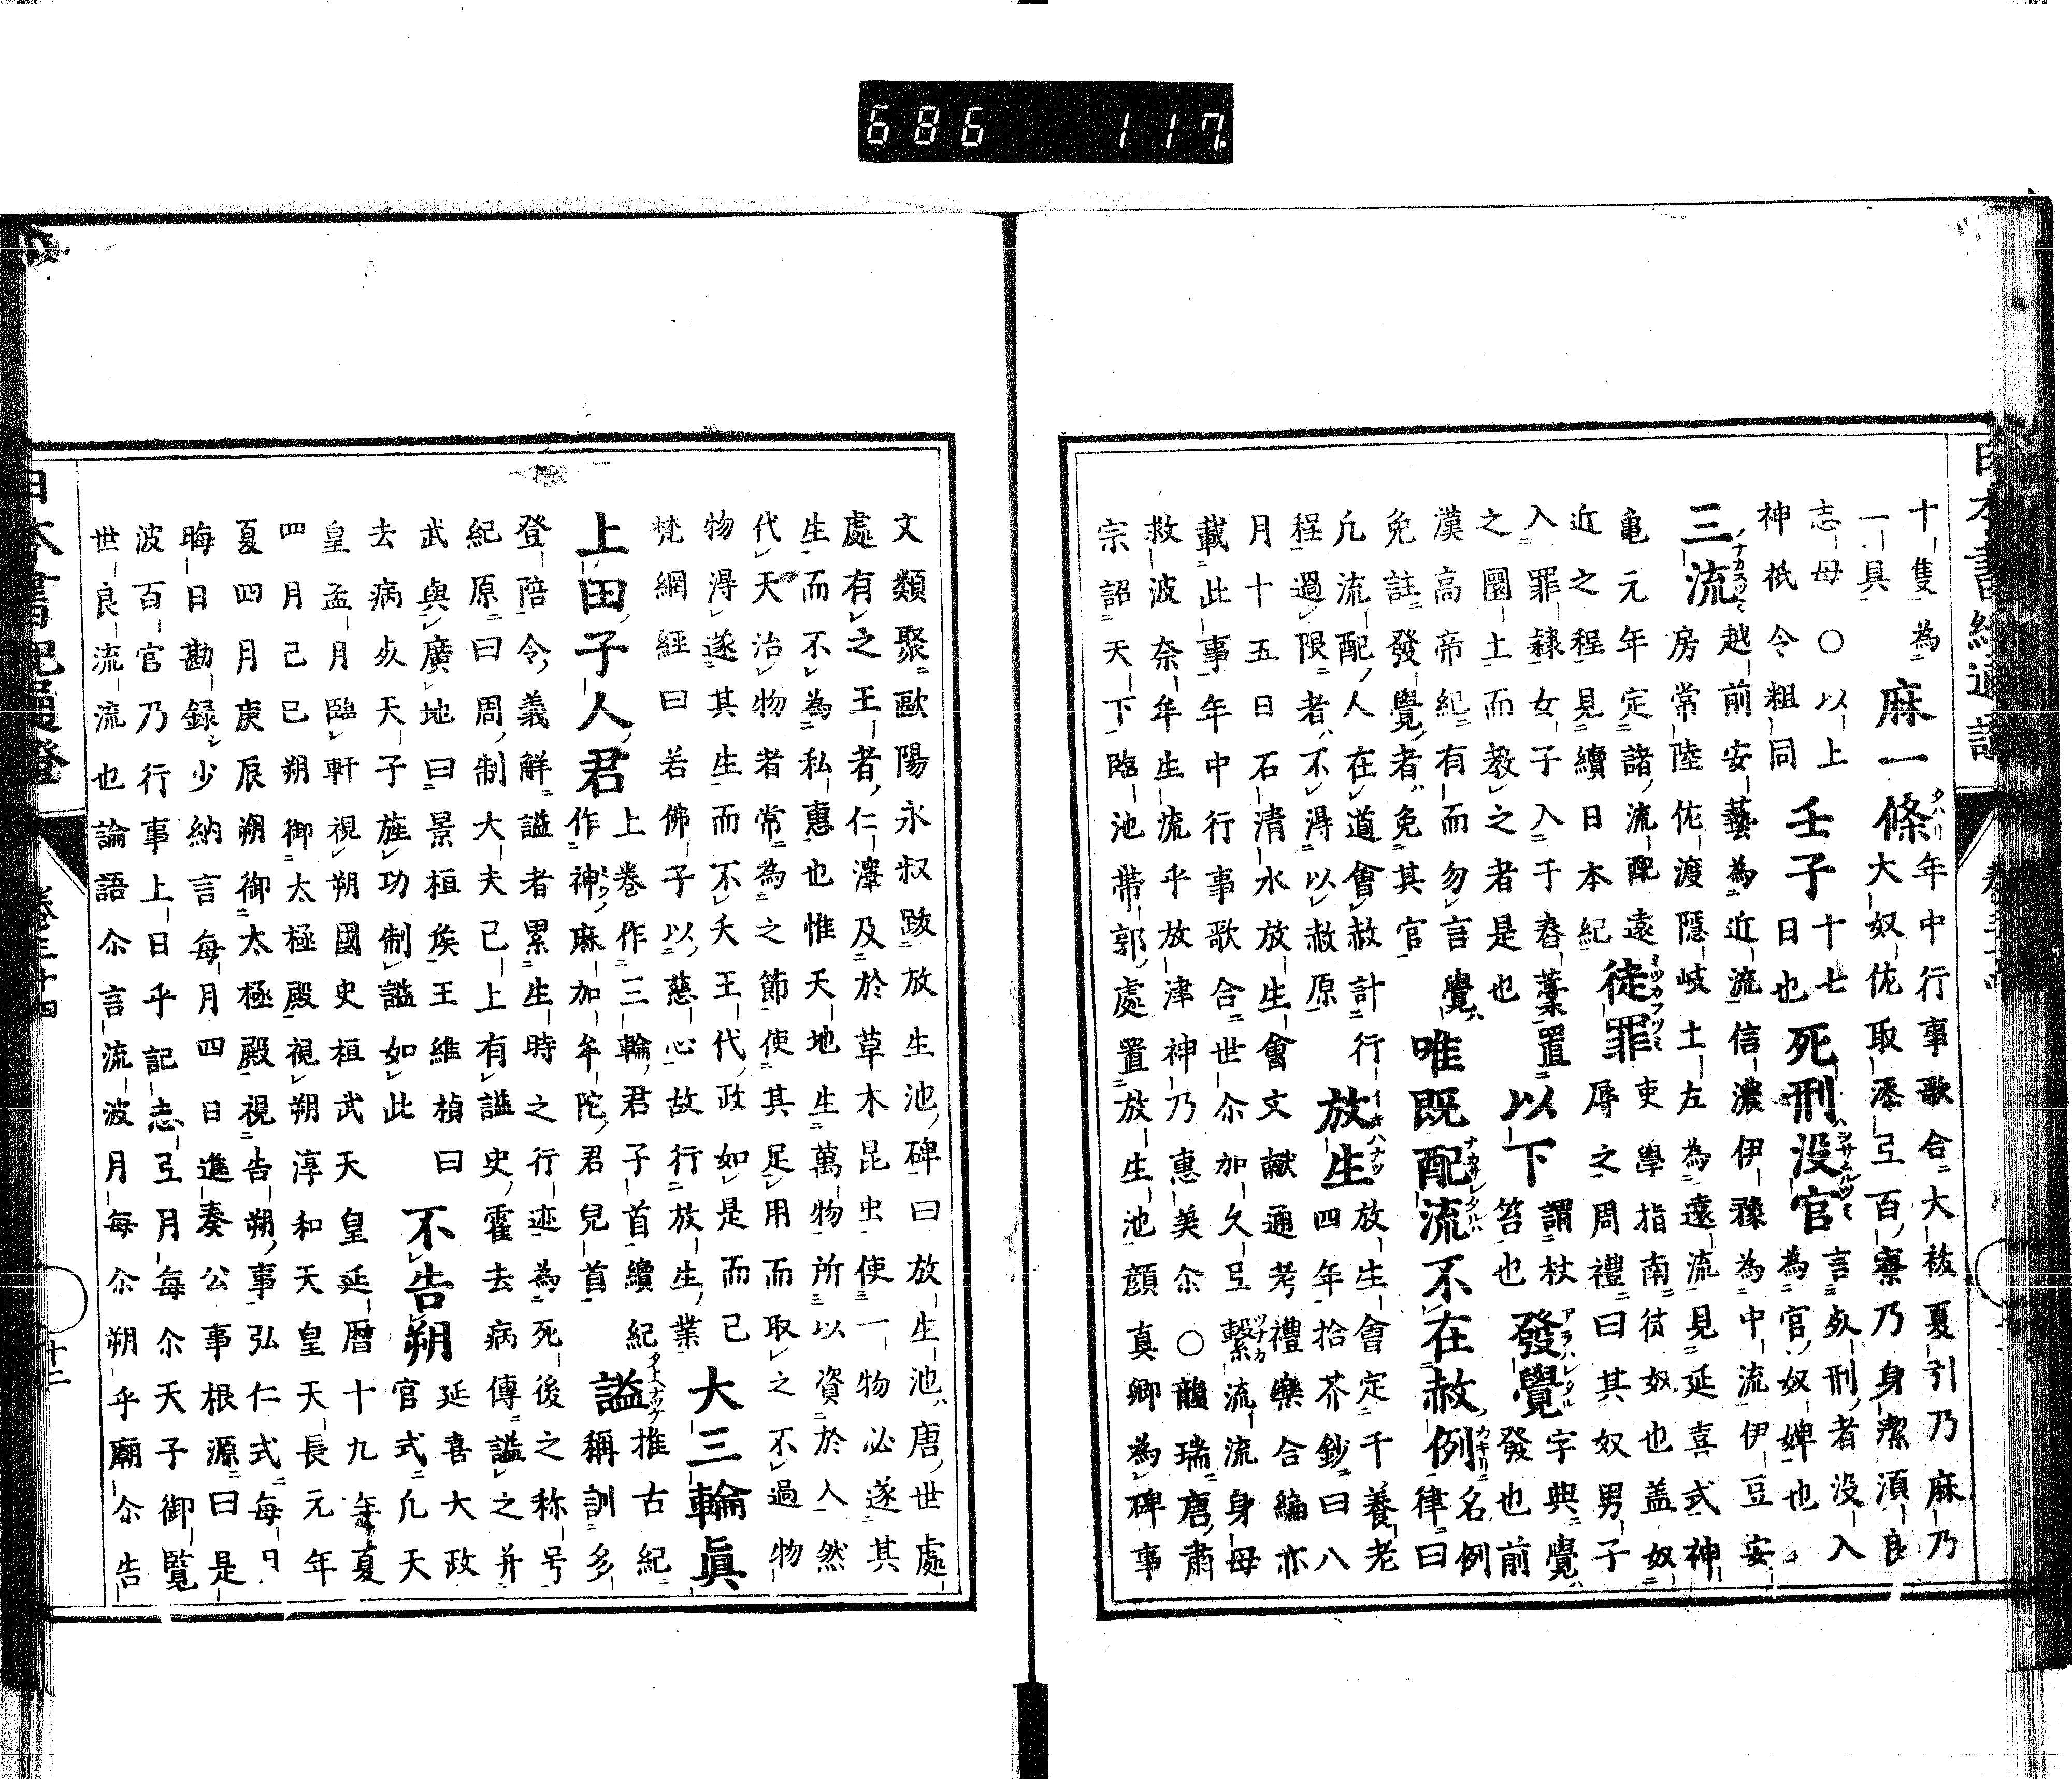 十隻為
一具
麻一條
年中行事歌合大祓夏引乃麻乃
大奴佐取添弖百寮乃身潔須良
志母○以上
神祇令粗同
壬子
十七
日也
死刑没官
言死刑者没入
為官奴婢也
三流
越前安藝為近流信濃伊豫為中流伊豆安
房常陸佐渡隱岐土左為遠流見延喜式神
亀元年定諸流配遠
近之程見續日本紀
徒罪
吏學指南徒奴也盖奴
辱之周禮曰其奴男子
入罪隸女子入于舂藁置
之圜土而教之者是也
以下
謂杖
笞也
發覺
字典覺
發也前
漢高帝紀有而勿言覺
免註發覺者免其官
唯既配流不在赦例
名例
律曰
凡流配人在道會赦計行
程過限者不得以赦原
放生
放生會定千養老
四年拾芥鈔曰八
月十五日石清水放生會文献通考禮樂合編亦
載此事年中行事歌合世尓加久弖繋流流身母
救波奈牟生流乎放津神乃惠美尓○韻瑞唐肅
宗詔天下臨池帶郭處置放生池顏真卿為碑事
文類聚歐陽永叔跋放生池碑曰放生池唐世處
處有之王者仁澤及於草木昆虫使一物必遂其
生而不為私惠也惟天地生萬物所以資於人然
代天治物者常為之節使其足用而取之不過物
物得遂其生而不夭王代政如是而已
梵網經曰若佛子以慈心故行放生業
大三輪眞
上田子人君
上巻作三輪君子首續紀
作神麻加牟陀君兒首
謚
推古紀
稱訓多
登陪令義解謚者累生時之行迹為死後之称号
紀原曰周制大夫已上有謚史霍去病傳謚之并
武與廣地曰景桓矦王維楨曰
去病㱝天子旌功制謚如此
不告朔
延喜大政
官式凡天
皇孟月臨軒視朔國史桓武天皇延暦十九年夏
四月己巳朔御太極殿視朔淳和天皇天長元年
夏四月庚辰朔御太極殿視告朔事弘仁式每月
晦日勘録少納言每月四日進奏公事根源曰是
波百官乃行事上日乎記志弖月每尓天子御覧
世良流流也論語尓言流波月每尓朔乎廟尓告